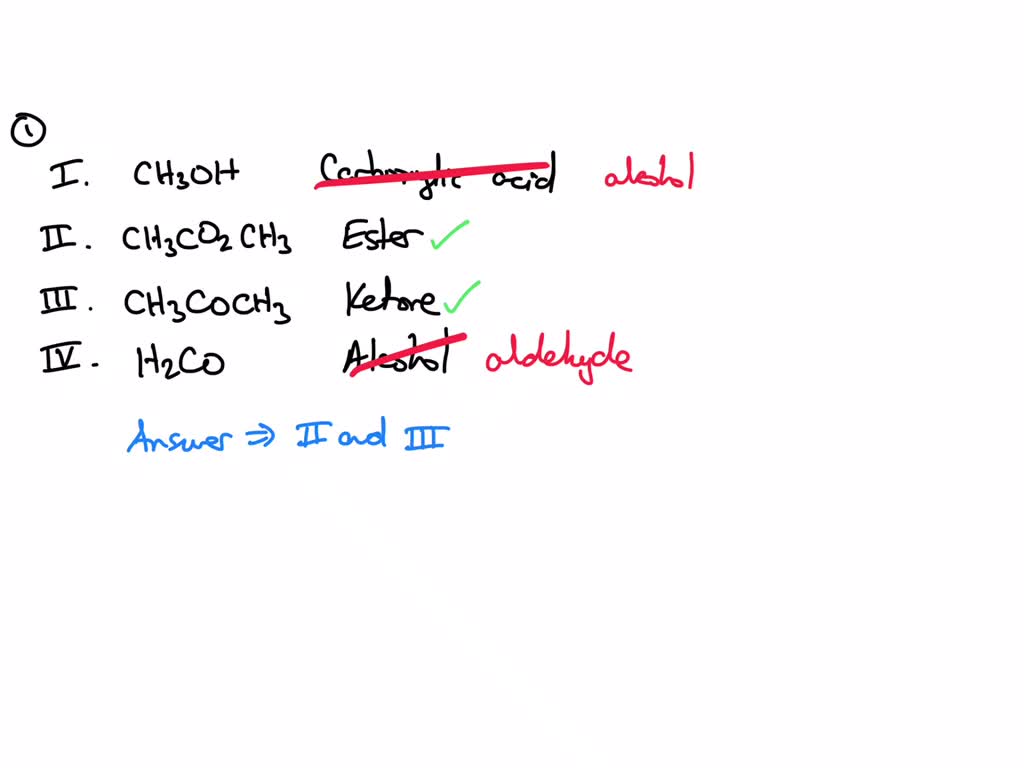 ①
I. CH3OH Carboxylic acid alcohol
II. CH3CO2CH3 Ester ✓
III. CH3COCH3 Ketone ✓
IV. H2CO Alcohol aldehyde
Answer ⇒ II and III